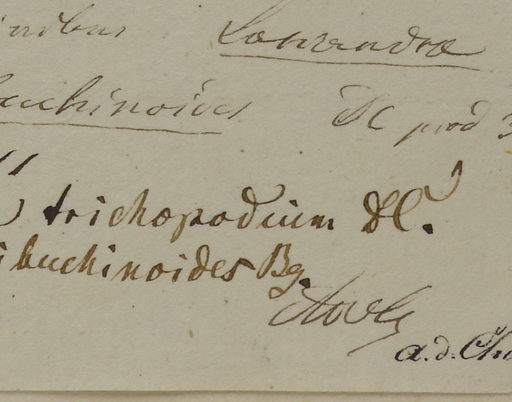 inibus Lavrandræ
uchinoides DC prod 3
trichopodium DC.
ibuchinoides Bg.
a.d. Cha